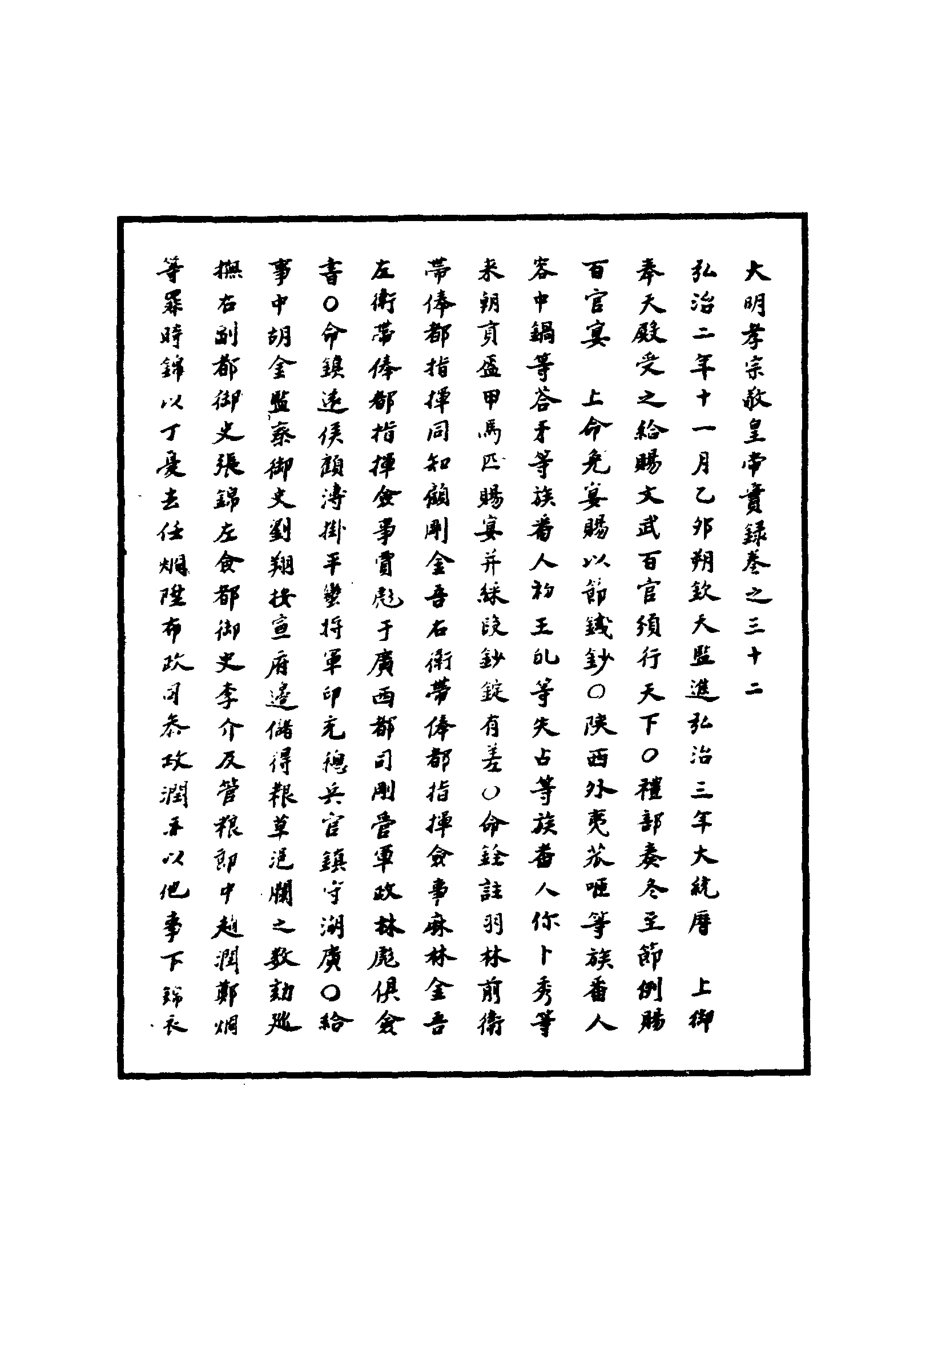 大明孝宗敬皇帝實録卷之三十二
弘治二年十一月乙邜朔欽天監進弘治三年大統曆　上御
奉天殿受之給賜文武百官頒行天下〇禮部奏冬至節例賜
百官宴　上命免宴賜以節錢鈔〇陝西外夷茶哑等族番人
容中鍋等荅牙等族番人初王癿等失占等族番人你卜秀等
来朝貢盔甲馬匹賜宴并綵段鈔錠有差〇命銓註羽林前衛
帶俸都指揮同知顧剛金吾右衛帶俸都指揮僉事麻林金吾
左衛帶俸都指揮僉事賈彪于廣西都司剛管軍政林彪俱僉
書〇命鎮遠侯顧溥掛平蠻將軍印充總兵官鎮守湖廣〇給
事中胡金監察御史劉翔按宣府邊儲得粮草浥爛之数劾廵
撫右副都御史張錦左僉都御史李介及管粮郎中趙潤鄭烱
等罪時錦以丁憂去任烱陞布政司叅政潤并以他事下錦衣